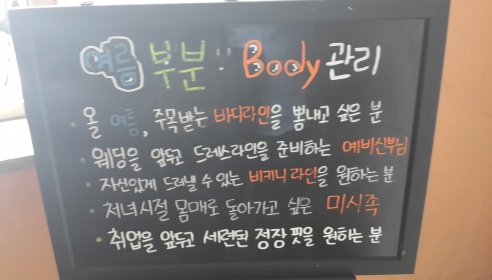 여름 부분 Body 관리
· 올 여름, 주목받는 바디라인을 뽐내고 싶은 분
· 웨딩을 앞두고 드레스라인을 준비하는 예비신부님
· 자신있게 드러낼 수 있는 비키니 라인을 원하는 분
· 처녀시절 몸매로 돌아가고 싶은 미시족
· 취업을 앞두고 세련된 정장 핏을 원하는 분